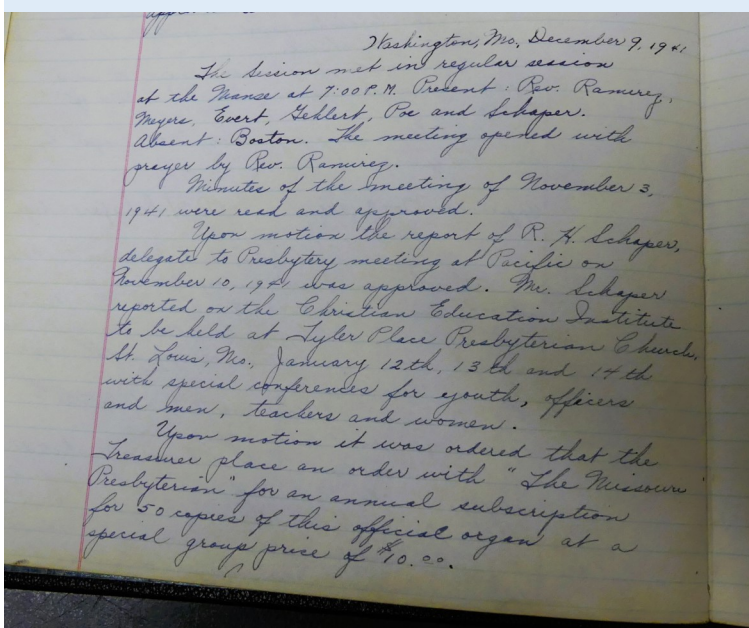 Washington, Mo., December 9, 1941
The Session met in regular session
at the Manse at 7:00 P.M. Present: Rev. Ramirez,
Meyers, Evert, Gehlert, Poe and Schaper.
Absent: Boston. The meeting opened with
prayer by Rev. Ramirez.
Minutes of the meeting of November 3,
1941 were read and approved.
Upon motion the report of R. H. Schaper,
delegate to Presbytery meeting at Pacific on
November 10, 1941 was approved. Mr. Schaper
reported on the Christian Education Institute
to be held at Tyler Place Presbyterian Church,
St. Louis, Mo., January 12th, 13th and 14th
with special conferences for youth, officers
and men, teachers and women.
Upon motion it was ordered that the
Treasurer place an order with "The Missouri
Presbyterian" for an annual subscription
for 50 copies of this official organ at a
special group price of $10.00.